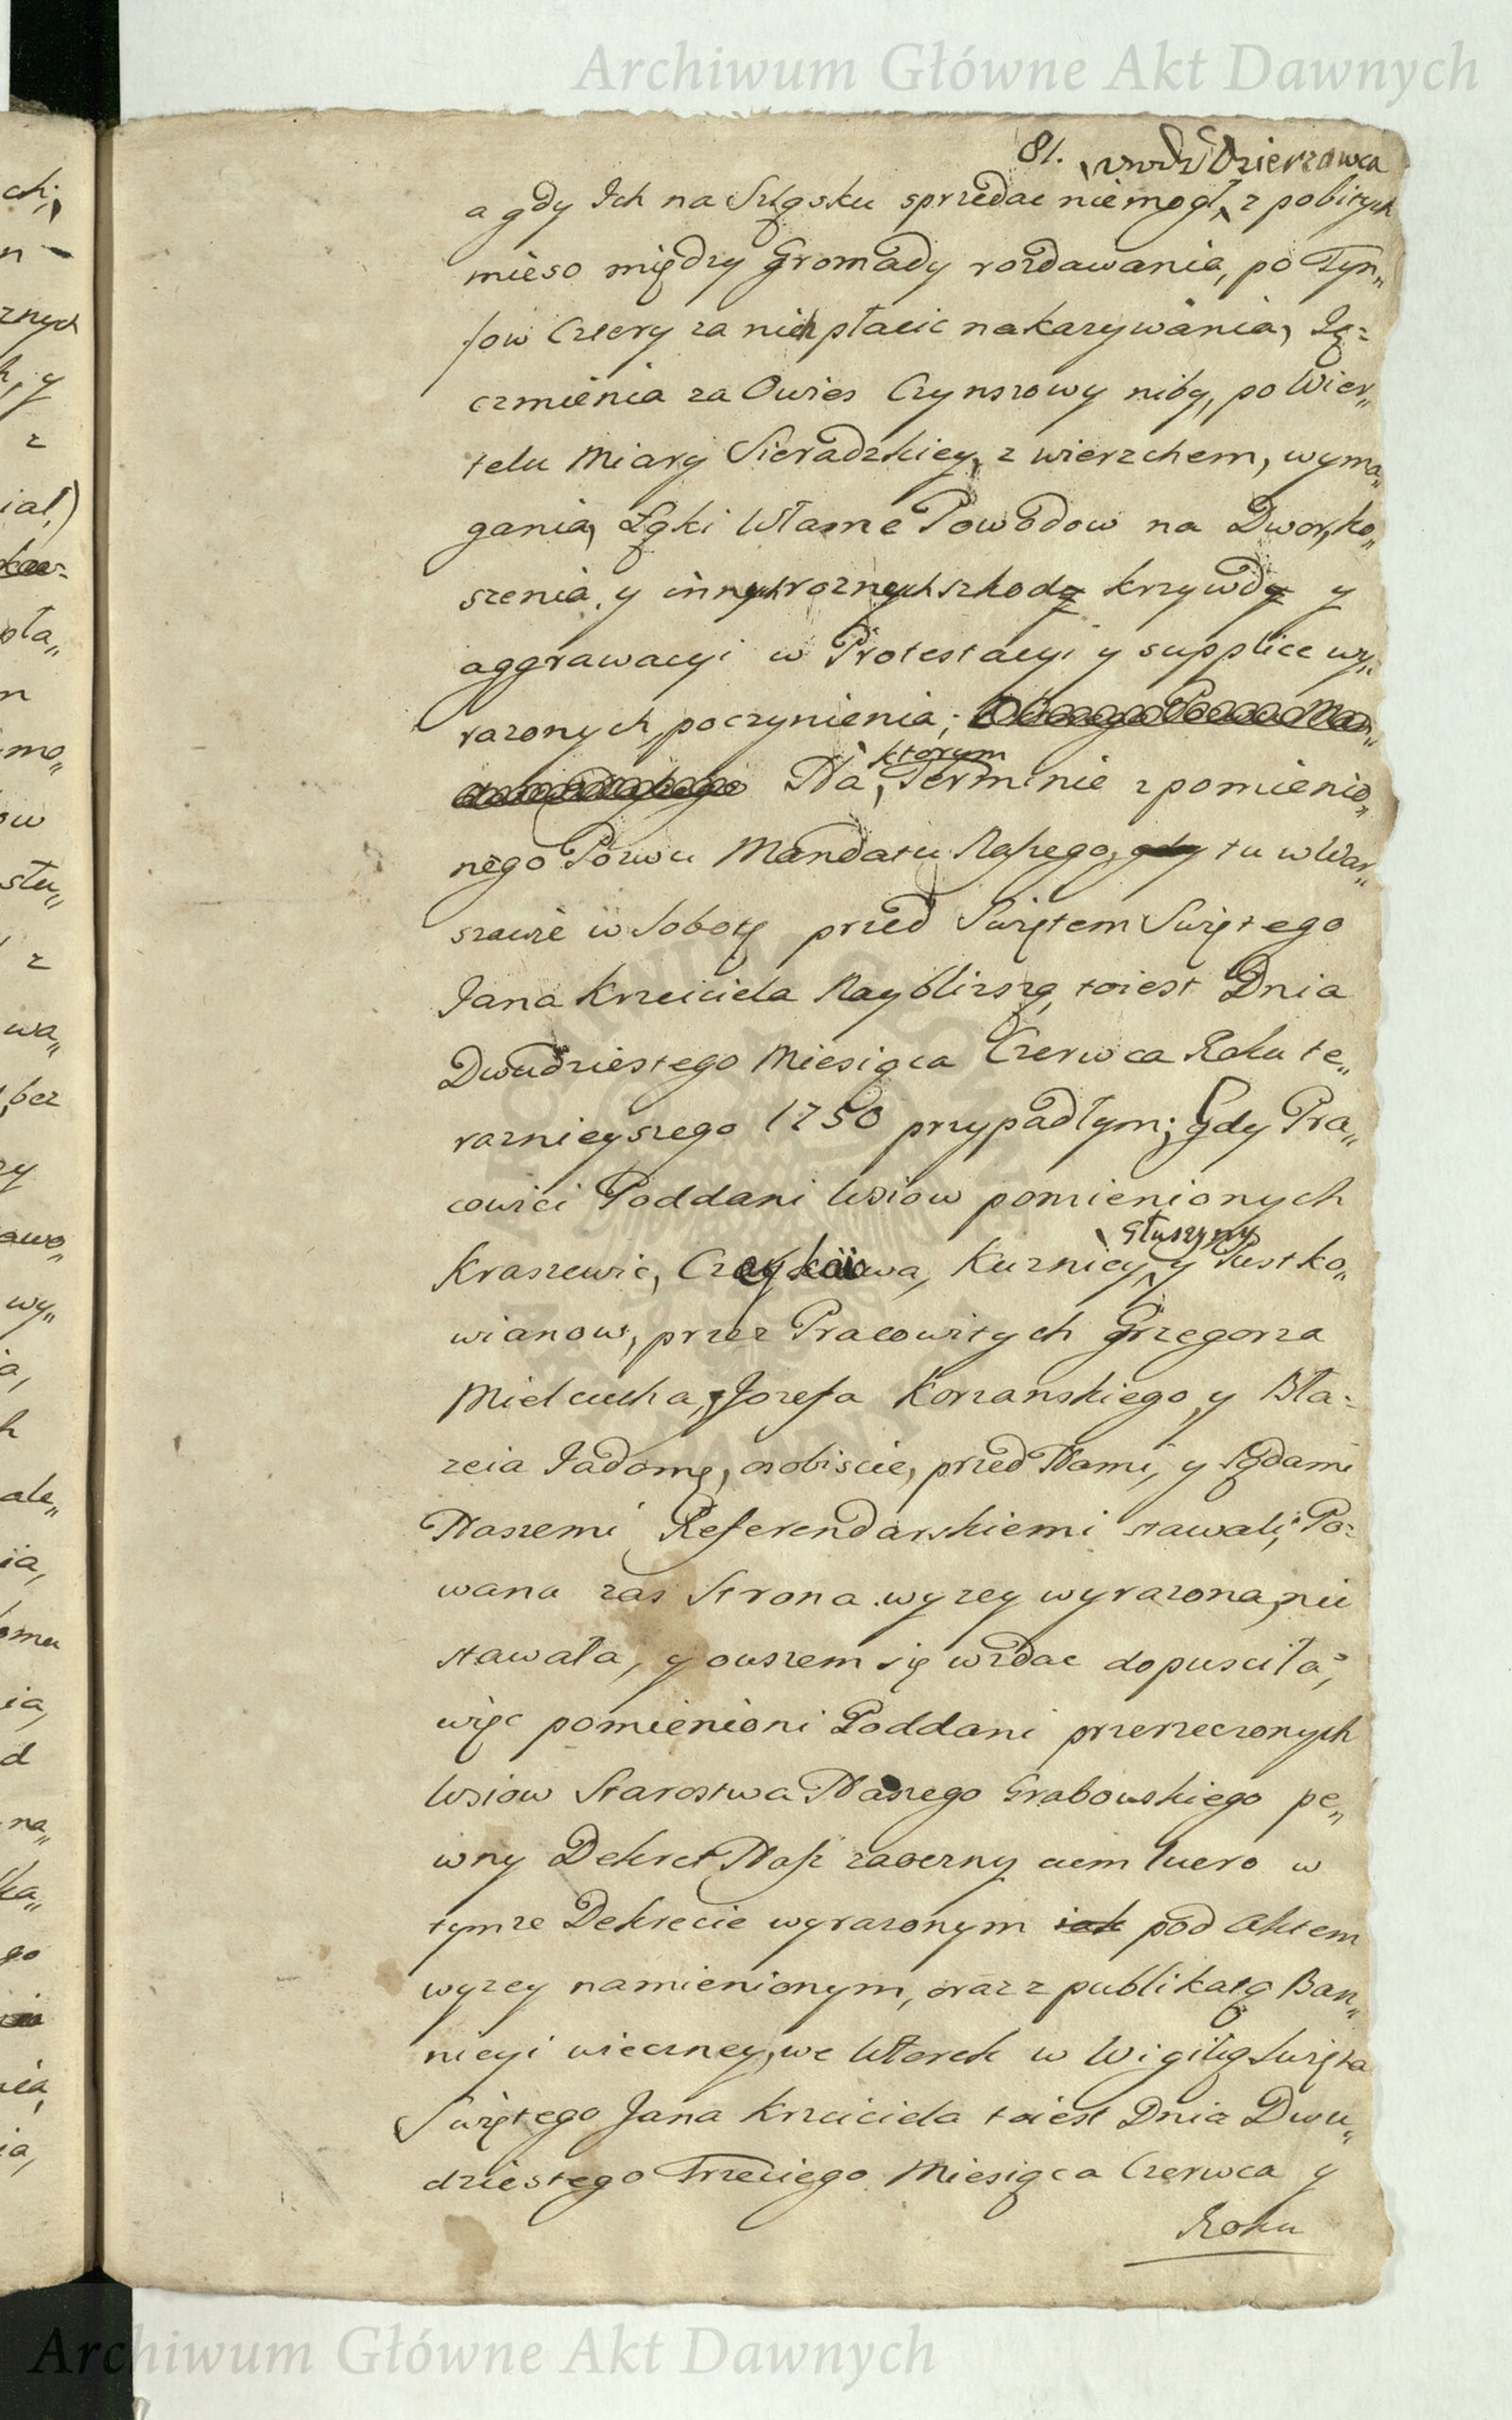 Archiwum Główne Akt Dawnych
81. Dzierzawca
a gdy Ich na Szląsku sprzedac niemogł, z pobitych
mieso między Gromady rozdawania, po Tyn„
fow Cztery za nich płacic nakazywania, Ię=
czmienia za Owies Czynszowy niby, po Wier„
telu Miary Sieradzkiey, z wierzchem, wyma„
gania, Łąki Własne Powodow na Dwor, ko„
szenia, y innych roznych szkod krzywd y
aggrawacyi w Protestacyi y supplice wy„
razonych, poczynienia;
ktorym
Na Terminie z pomienio„
nego Pozwu Mandatu Naszego, gdy tu w War„
szawie w Sobotę przed Swiętem Swiętego
Jana Krzciciela Nayblizszą, toiest Dnia
Dwudziestego Miesiąca Czerwca Roku te„
raznieyszego 1750 przypadłym; Gdy Pra„
cowici Poddani Wsiow pomienionych
Głuszyny
Kraszewic, Czaykowa, Kuznicy, y Pustko„
wianow, przez Pracowitych Grzegorza
Mielcucha, Jozefa Korzanskiego, y Bła=
zeia Jadomę, osobiscie, przed Nami, y Sądami
Naszemi Referendarskiemi stawali, Po=
wana zas Strona wyzey wyrazona, nie
stawała, y owszem się wzdac dopusciła,
więc pomienioni Poddani przerzeczonych
Wsiow Starostwa Naszego Grabowskiego pe„
wny Dekret Nasz zaoczny cum lucro w
tymze Dekrecie wyrazonym iak pod Aktem
wyzey namienionym, oraz z publikatą Ban„
nicyi wieczney, we Wtorek w Wigilią Swięta
Swiętego Jana Krzciciela toiest Dnia Dwu„
dziestego Trzeciego Miesiąca Czerwca y
Roku
Archiwum Główne Akt Dawnych